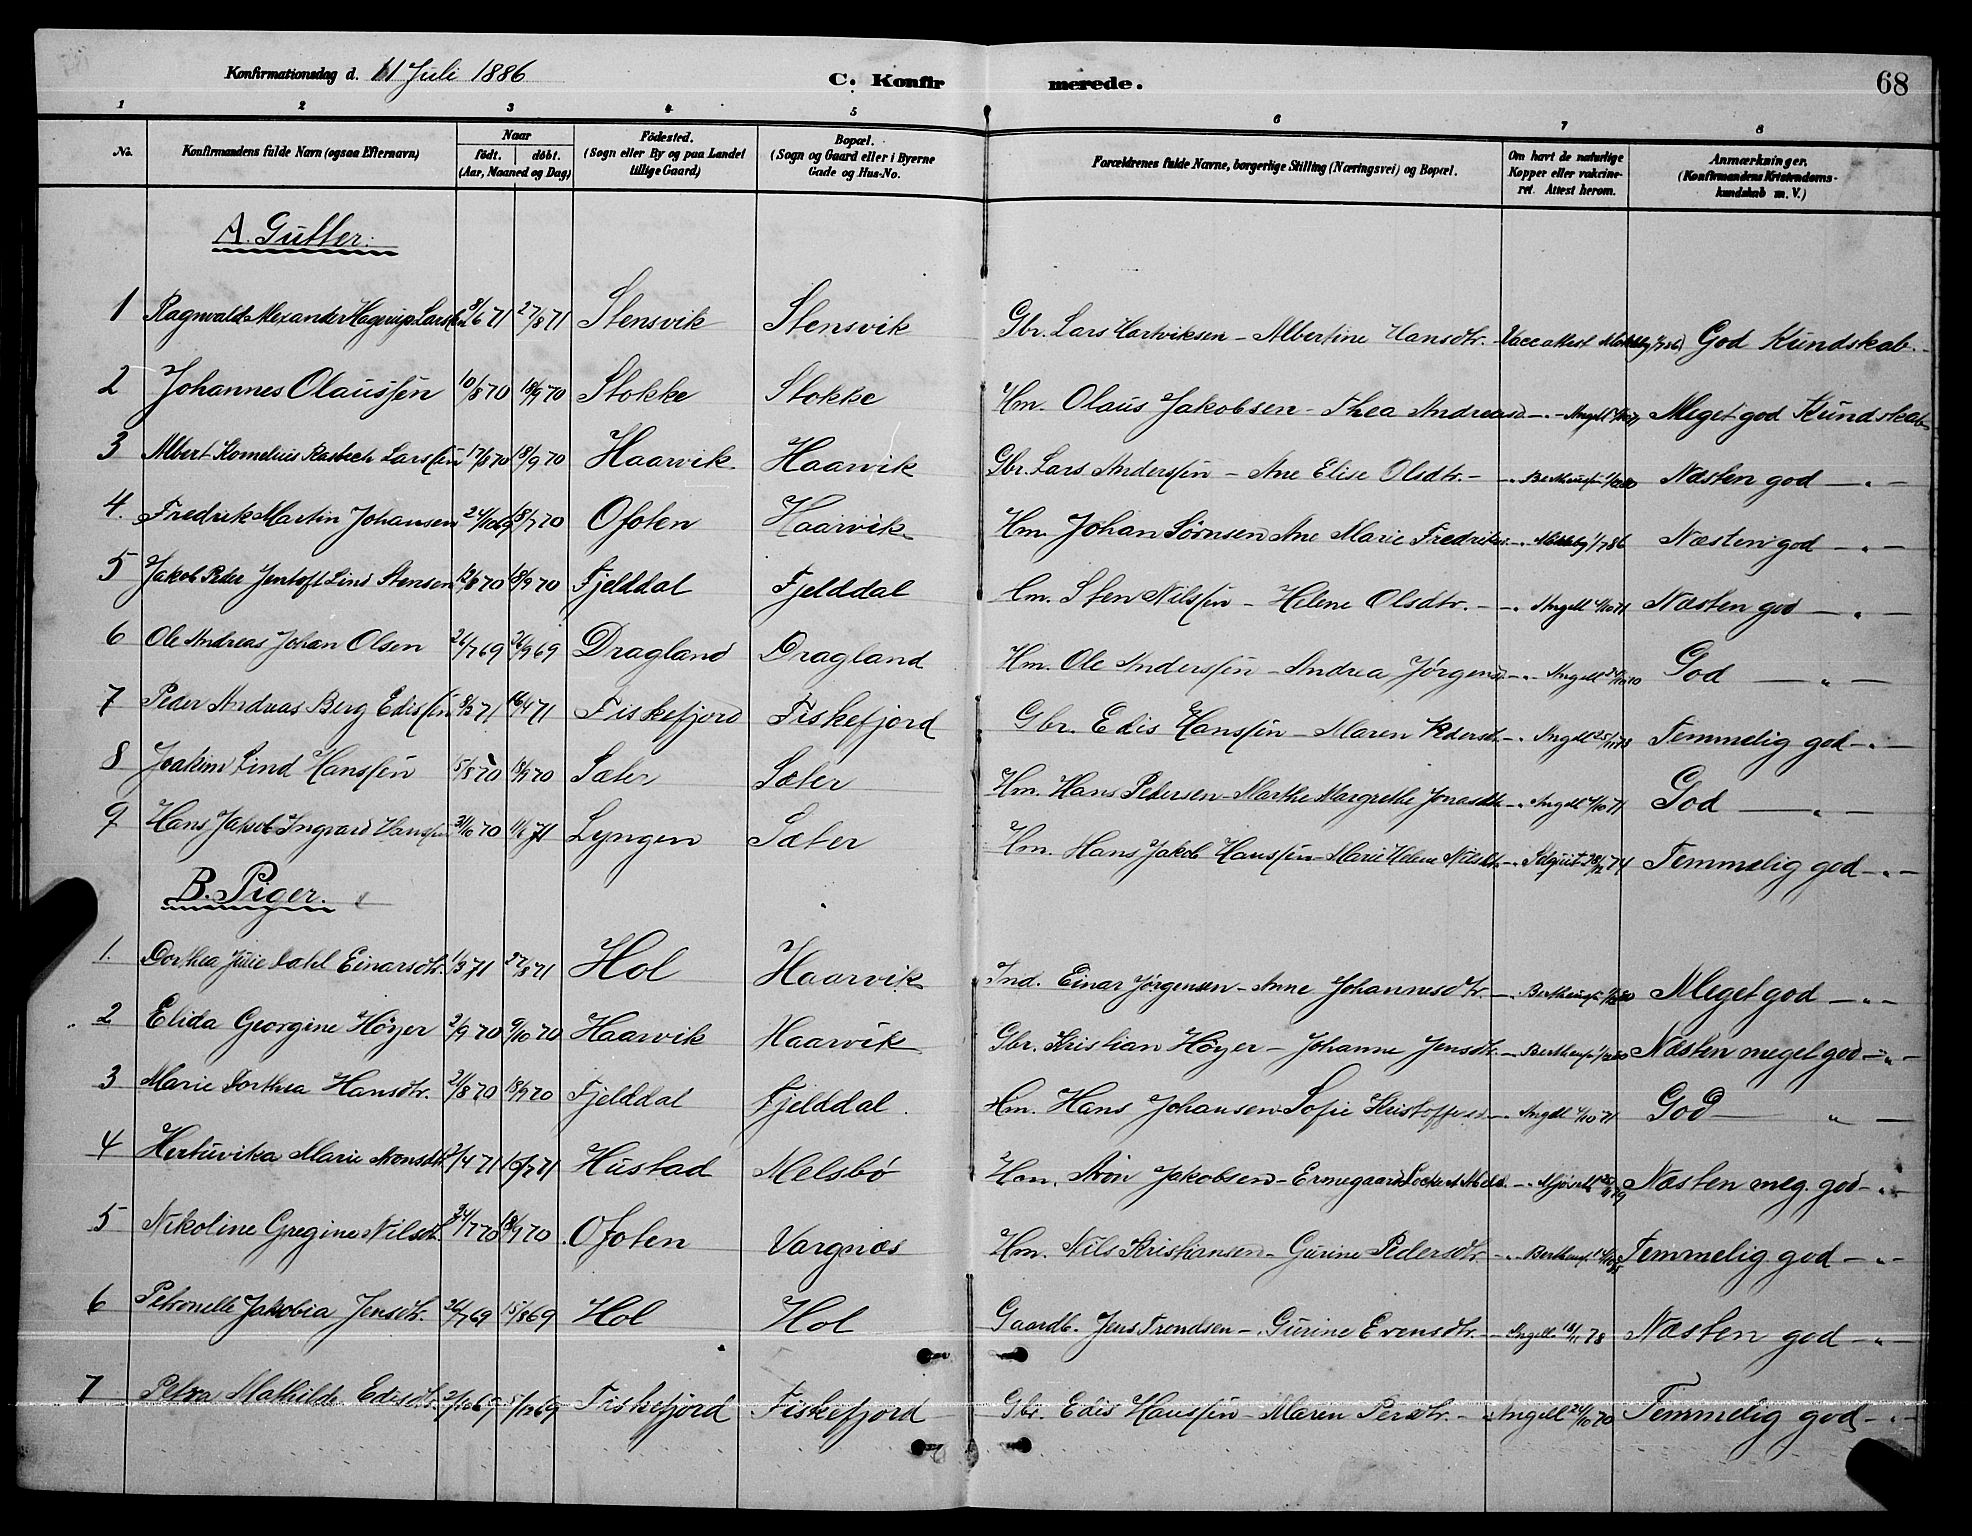 Konfirmationsdag d. 11 Juli 1886 C. Konfirmerede. 68
1 2 3 4 5 6 7 8
No. Konfirmandens fulde Navn (ogsaa Efternavn) Naar født. døbt. (Aar, Maaned og Dag) Fødested. (Sogn eller By og paa Landet tillige Gaard) Bopæl. (Sogn og Gaard eller i Byerne Gade og Hus-No. Forældrenes fulde Navne, borgerlige Stilling (Næringsvei) og Bopæl. Om havt de naturlige Kopper eller vaccineret. Attest herom. Anmærkninger. (Konfirmandens Kristendomskundskab m. V.)
A. Gutter.
1 Ragnvald Alexander Hagerup Larssen 8/6 71 27/8 71 Stensvik Stensvik Gbr. Lars Hartviksen - Albertine Hansdtr. - Vaccattest God Kundskab.
2 Johannes Olaussen 10/8 70 18/9 70 Stokke Stokke Hm. Olaus Jakobsen - Thea Andreasd - " - Angell Meget god Kundskab
3 Albert Kornelius Larssen 17/8 70 18/9 70 Haarvik Haarvik Gbr. Lars Anderssen - Ane Elise Olsdtr. - " Næsten god - " -
4. Fredrik Martin Johansen 24/10 69 18/7 70 Ofoten Haarvik Hm. Johan Sørnsen Ane Marie - " 1/7 86 Næsten god - " -
5 Jakob Peder Jentoft Lind Stensen 12/8 70 18/9 70 Fjelddal Fjelddal Hm. Sten Nilssen - Helene Olsdtr. - " Angell 4/10 71 Næsten god - " -
6 Ole Andreas Johan Olsen 26/7 69 26/9 69 Dragland Dragland Hm. Ole Anderssen - Andrea Jørgensd - " Angell God - " -
7 Peder Andreas Berg Edissen 8/3 71 16/4 71 Fiskefjord Fiskefjord Gbr. Edis Hanssen - Maren Pedersd. - " Angell Temmelig god - " -
8 Joakim Lind Hanssen 15/8 70 18/9 70 Sæter Sæter Hm. Hans Pedersen - Marthe Margrethe Jonasdtr - " Angell 4/10 71 God - " -
9 Hans Jakob Ingvard Hanssen 31/10 70 11/6 71 Lyngen Sæter Hm. Hans Jakob Hanssen - Marie Helene Nilsdtr - " 74 Temmelig god - " -
B. Piger.
1. Dorthea Julie Dahl Einarsdtr. 1/3 71 27/8 71 Hol Haarvik Ind. Einar Jørgensen - Anne Johannesdtr. - " Meget god - " -
2 Elida Georgine Höyer 2/9 70 9/10 70 Haarvik Haarvik Gbr. Kristian Höyer - Johanne Jensdtr. - " Næsten meget god - " -
3 Marie Dorthea Hansdtr. 21/8 70 18/9 70 Fjelddal Fjelddal. Hm. Hans Johansen - Sofie - " Angell 4/10 71 God - " -
4 Hertuvika Marie Aronsdtr 2/4 71 16/7 71 Hustad Melsbö Hm. Aron Jakobsen - Ermegaard - " Næsten meg. god - " -
5 Nikoline Gregine Nilsdtr. 24/7 70 18/9 70. Ofoten Vargnæs Hm. Nils Kristiansen - Gurine Pedersdtr. - " Temmelig god - " -
6 Petronelle Jakobia Jensdtr. 26/7 69 15/8 69 Hol Hol Gaardb. Jens Trondsen - Gurine Evensdtr. - Angell 78 Næsten god - " -
7 Petra Mathilde Edisdtr. 2/10 69 5/12 69 Fiskefjord Fiskefjord Gbr. Edis Hanssen - Maren Persdtr. - " Angell 24/10 70 Temmelig god - " -